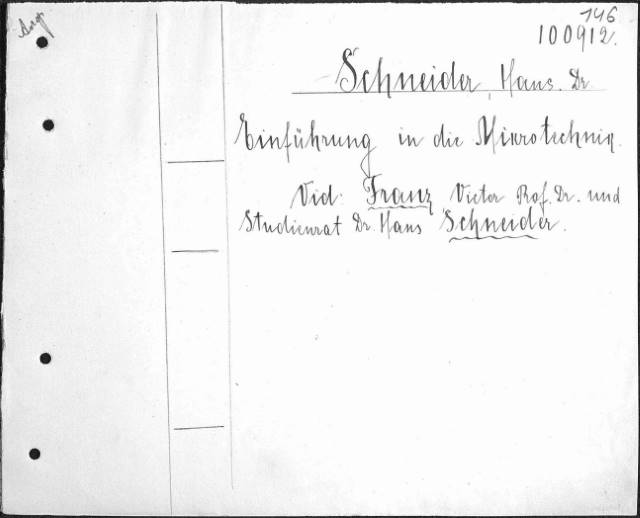 146
100912.
Schneider, Hans. Dr.
Einführung in die Mikrotechnik.
Vid: Franz, Victor Prof. Dr. und
Studienrat Dr. Hans Schneider.